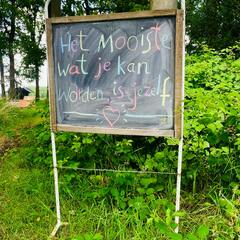 Het Mooiste
wat je kan
worden is jezelf